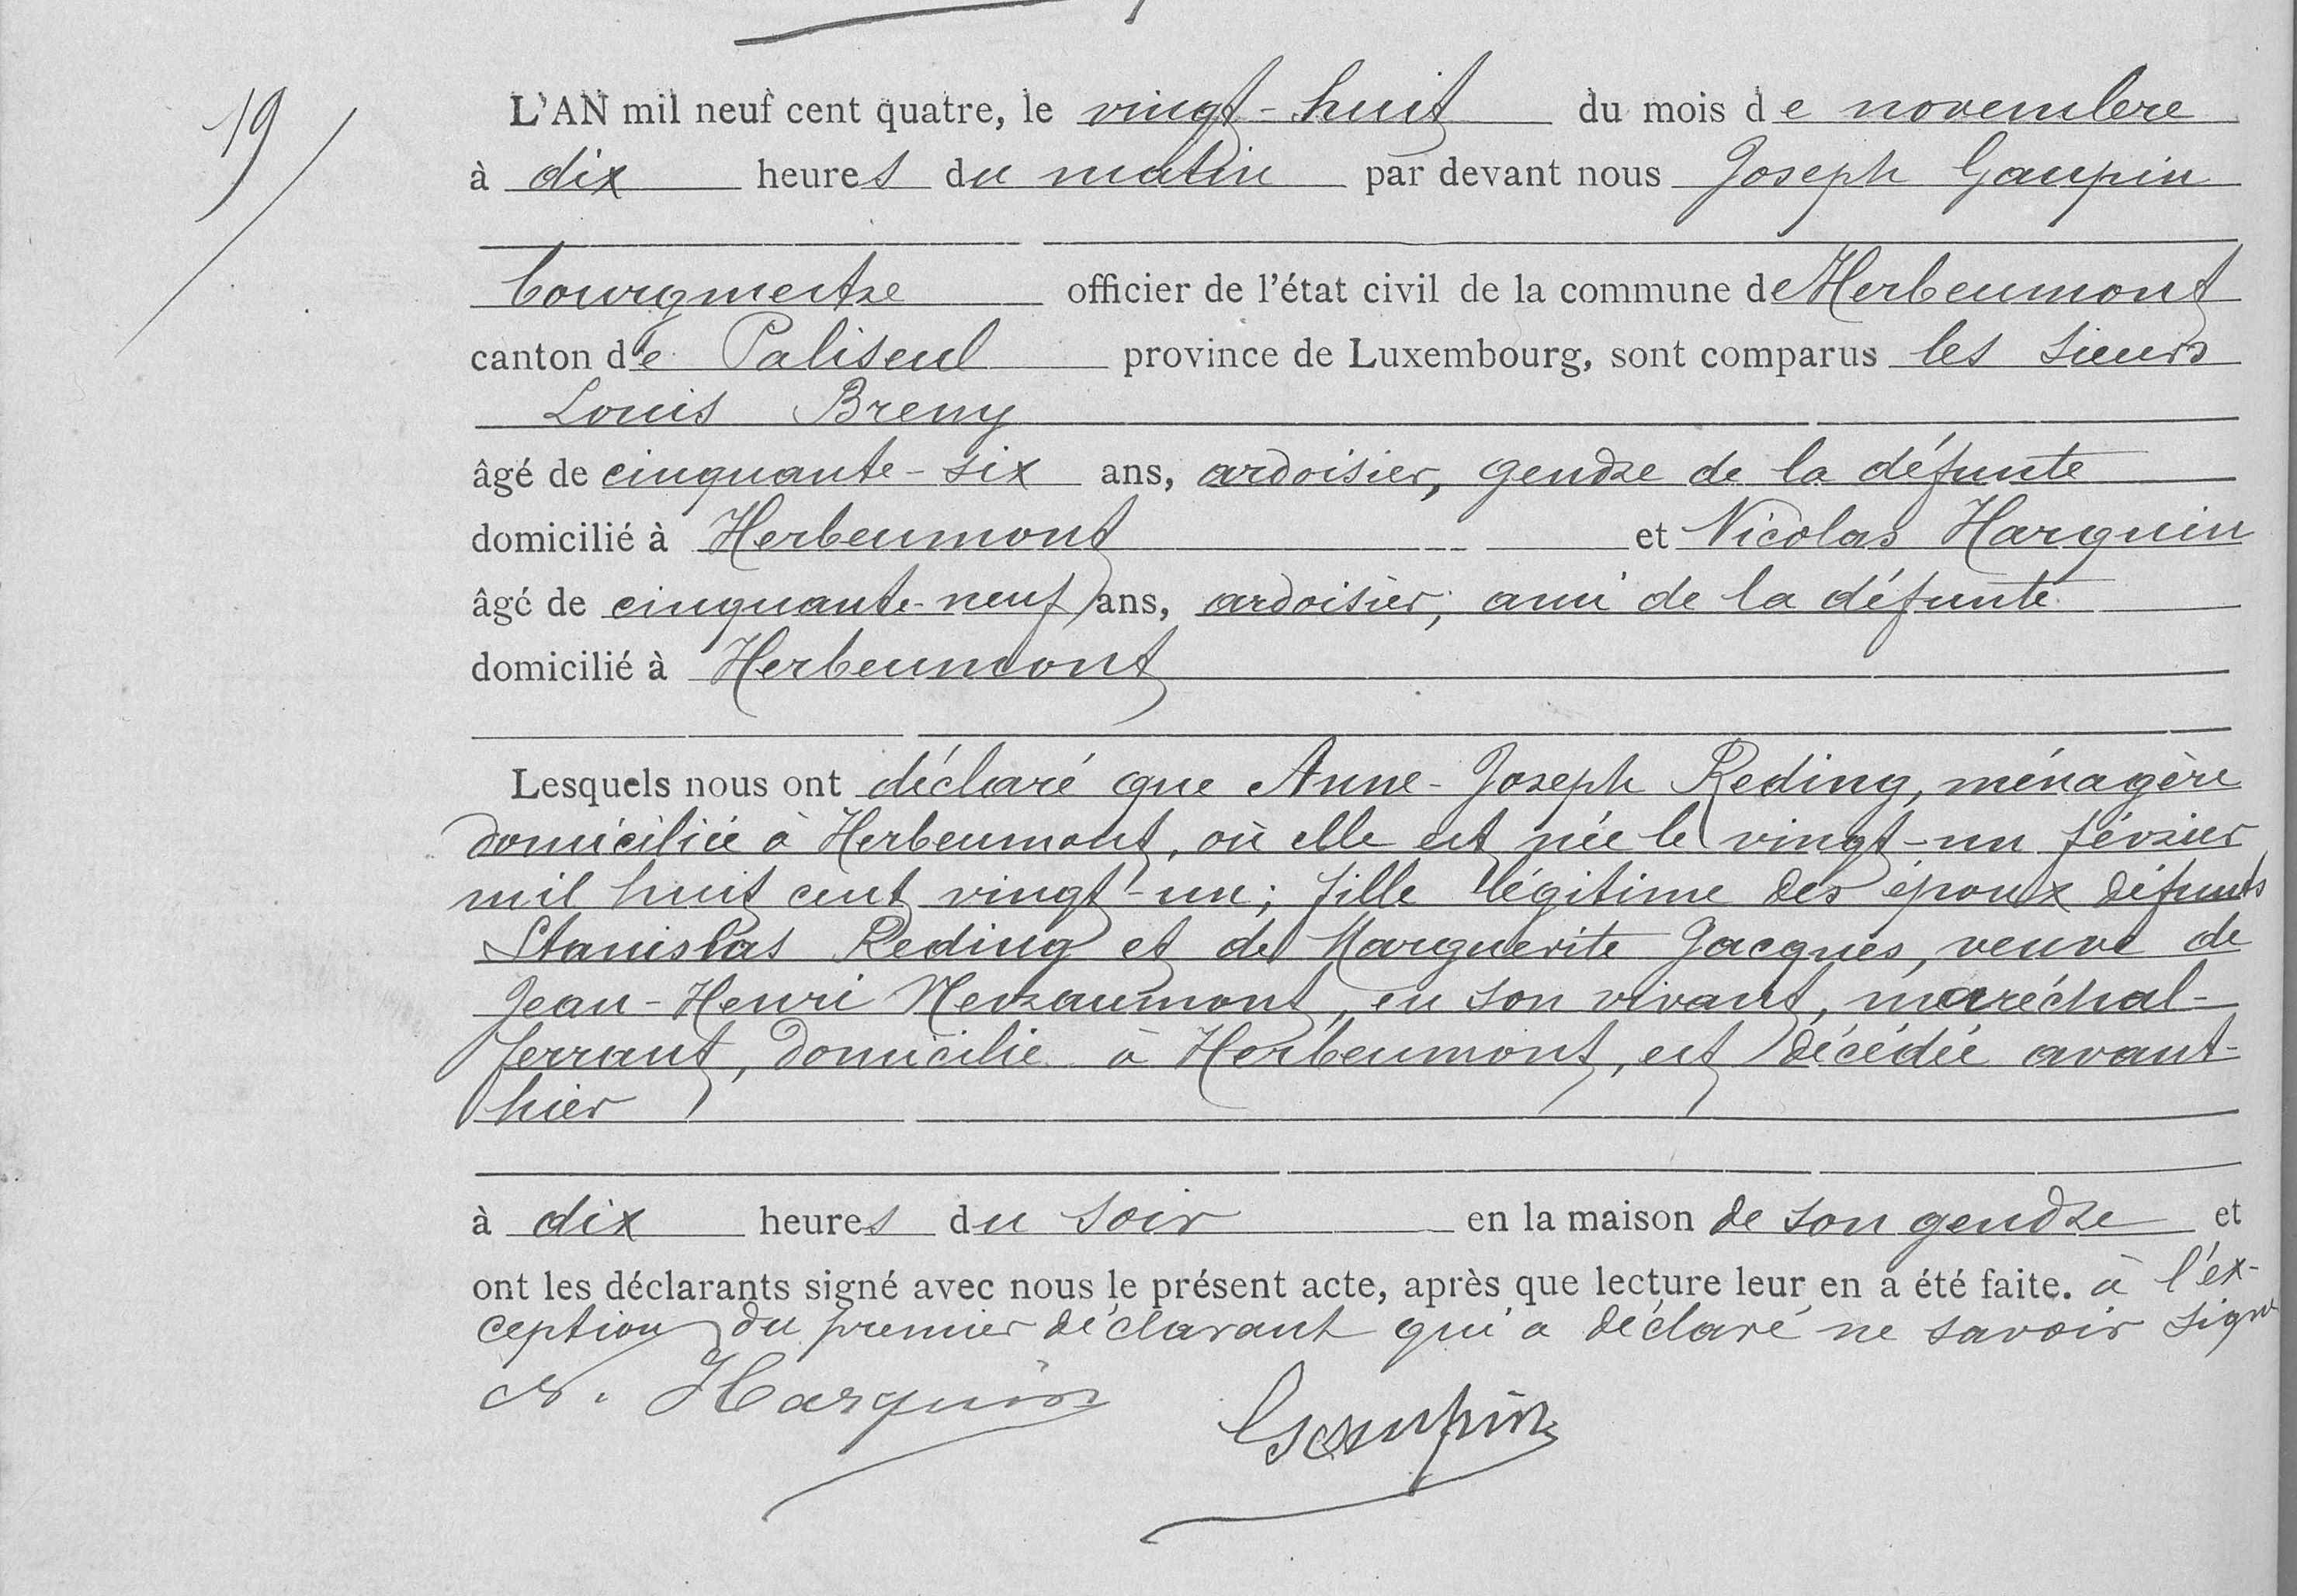 19
L'AN mil neuf cent quatre, le vingt-huit du mois de novembre
à dix heures du matin par devant nous Joseph Gaupin
bourgmestre officier de l'état civil de la commune de Herbeumont
canton de Paliseul province de Luxembourg, sont comparus les sieurs
Louis Breny
âgé de cinquante-six ans, ardoisier, gendre de la défunte
domicilié à Herbeumont et Nicolas Harquin
âgé de cinquante-neuf ans, ardoisier, ami de la défunte
domicilié à Herbeumont
Lesquels nous ont déclaré que Anne-Joseph Reding, ménagère
domiciliée à Herbeumont, où elle est née le vingt-un février
mil huit cent vingt-un; fille légitime des époux défunts
Stanislas Reding et de Marguerite Jacques, veuve de
Jean-Henri, en son vivant, maréchal-
ferrant, domicilié à Herbeumont, est décédée avant-
hier
à dix heures du soir en la maison de son gendre et
ont les déclarants signé avec nous le présent acte, après que lecture leur en a été faite. à l'ex-
ception du premier déclarant qui a déclaré ne savoir signer
N. Harquin
Gaupin